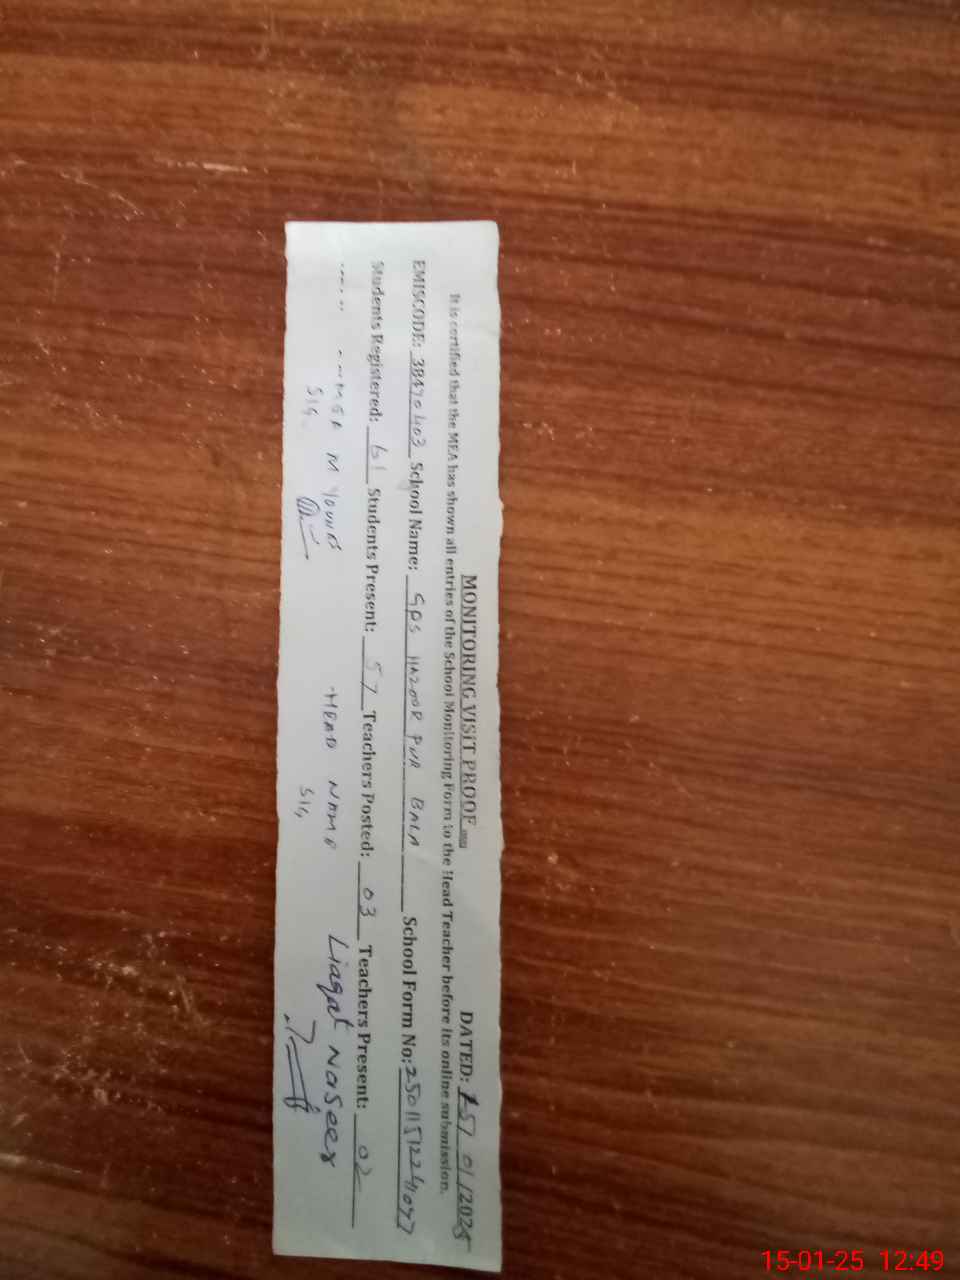 MONITORING VISIT PROOF DATED: 15/01/2025
It is certified that the MEA has shown all entries of the School Monitoring Form to the Head Teacher before its online submission.
EMISCODE: 38470403 School Name: GPS HAZOOR PUR BALA School Form No: 250115122411047
Students Registered: 61 Students Present: 57 Teachers Posted: 03 Teachers Present: 02
M YOUNAS HEAD NAME Liaqat Naseer
SIG. SIG,
15-01-25 12:49